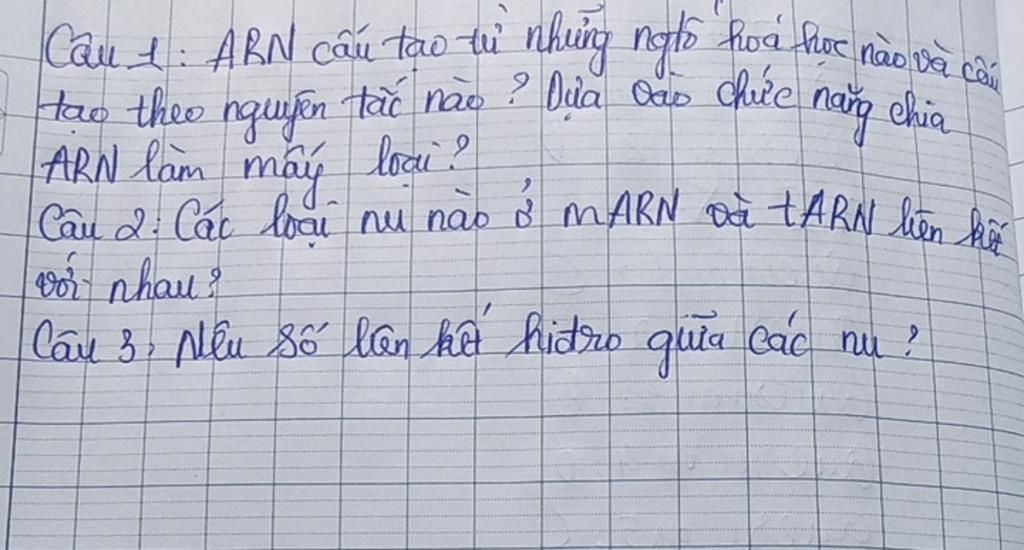 Câu 1: ARN cấu tạo từ những ngtố hoá học nào và cấu
tạo theo nguyên tắc nào? Dựa vào chức năng chia
ARN làm mấy loại?
Câu 2: Các loại nu nào ở mARN và tARN liên kết
với nhau?
Câu 3, Nêu số liên kết hidro giữa các nu?